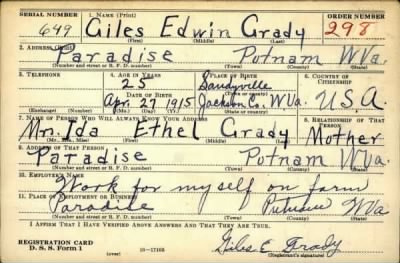 SERIAL NUMBER 1. NAME (Print) ORDER NUMBER
649 Giles Edwin Grady 298
(First) (Middle) (Last)
2. ADDRESS (Print)
Paradise Putnam W Va.
(Number and street or R. F. D. number) (Town) (County) (State)
3. TELEPHONE 4. AGE IN YEARS 5. PLACE OF BIRTH 6. COUNTRY OF CITIZENSHIP
25 Sandyville
DATE OF BIRTH (Town or county)
Apr. 27 1915 Jackson Co. W Va. U.S.A.
(Exchange) (Number) (Mo.) (Day) (Yr.) (State or country)
7. NAME OF PERSON WHO WILL ALWAYS KNOW YOUR ADDRESS 8. RELATIONSHIP OF THAT PERSON
Mr. Ida Ethel Grady Mother
(Mr., Mrs., Miss) (First) (Middle) (Last)
9. ADDRESS OF THAT PERSON
Paradise Putnam W Va.
(Number and street or R. F. D. number) (Town) (County) (State)
10. EMPLOYER'S NAME
Work for myself on farm
11. PLACE OF EMPLOYMENT OR BUSINESS
Paradise W Va
(Number and street or R. F. D. number) (Town) (County) (State)
I AFFIRM THAT I HAVE VERIFIED ABOVE ANSWERS AND THAT THEY ARE TRUE.
REGISTRATION CARD
D. S. S. Form 1 16—17105 Giles E Grady
(Registrant's signature)